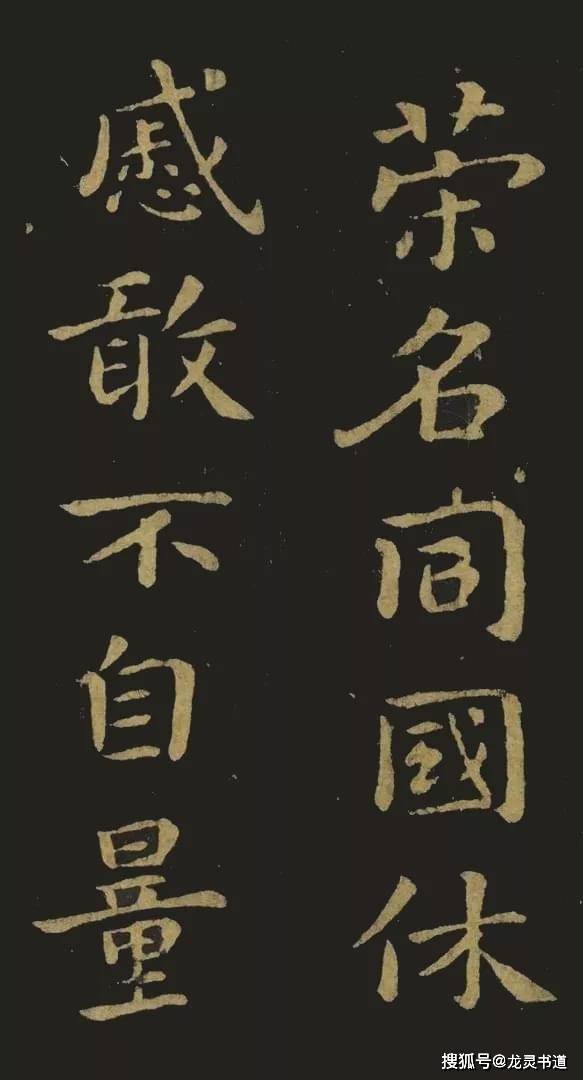 荣名同國休
慼敢不自量
搜狐号@龙灵书道